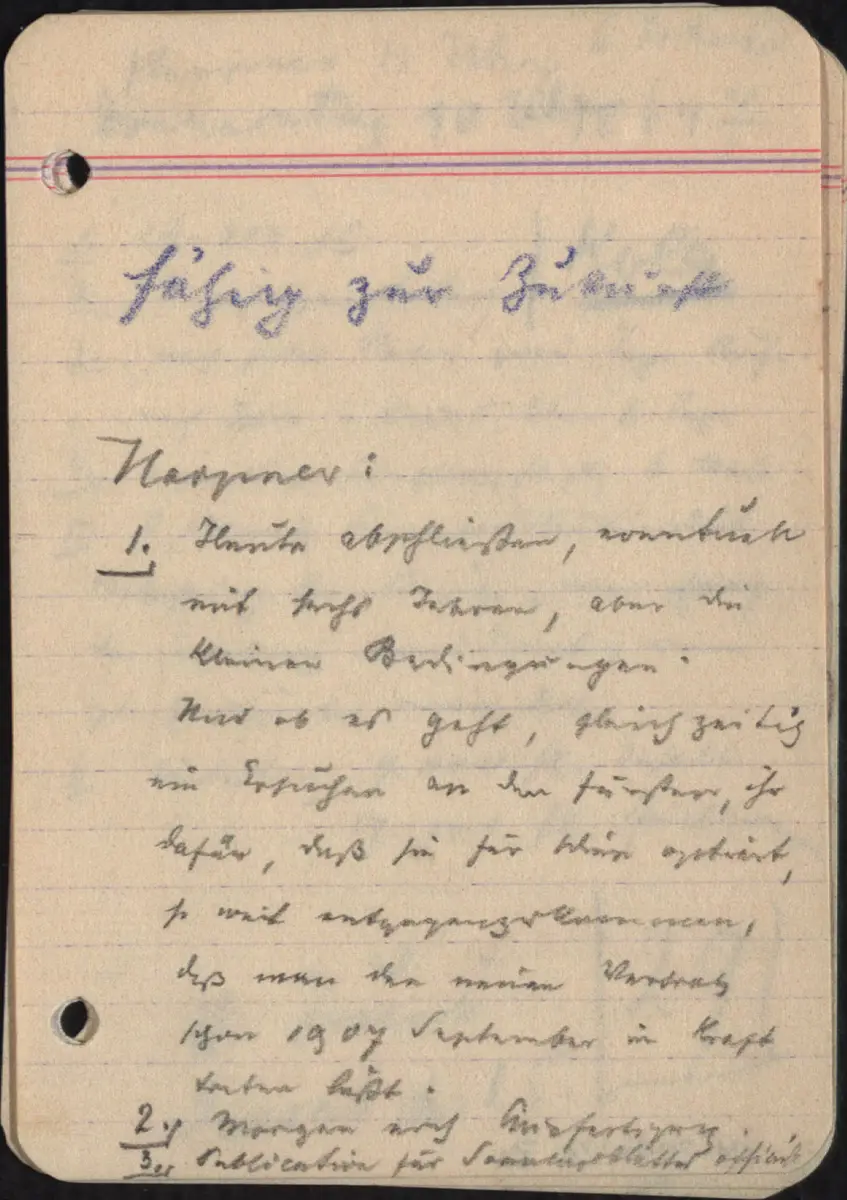 fähig zur Zukunft
Harpner:
1. Heute abschließen, eventuell
mit sechs Jahren, aber die
kleinen Bedingungen.
Und ob es geht, gleichzeitig
ein Ersuchen an den Fürsten, ihr
dafür, daß sie für Wien optiert,
so weit entgegenzukommen,
daß man den neuen Vertrag
schon 1907 September in Kraft
treten läßt.
2. Morgen nach Ausfertigung.
3. Publication für Sonntagsblätter